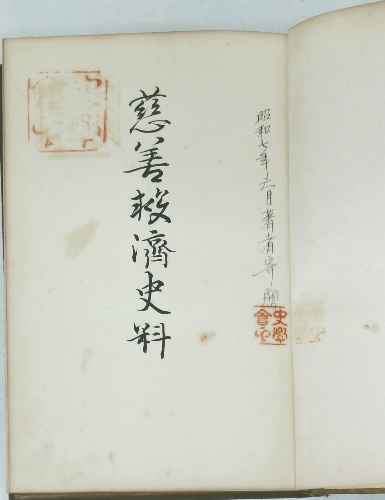 昭和七年六月著者寄贈
史學會印
慈善救濟史料